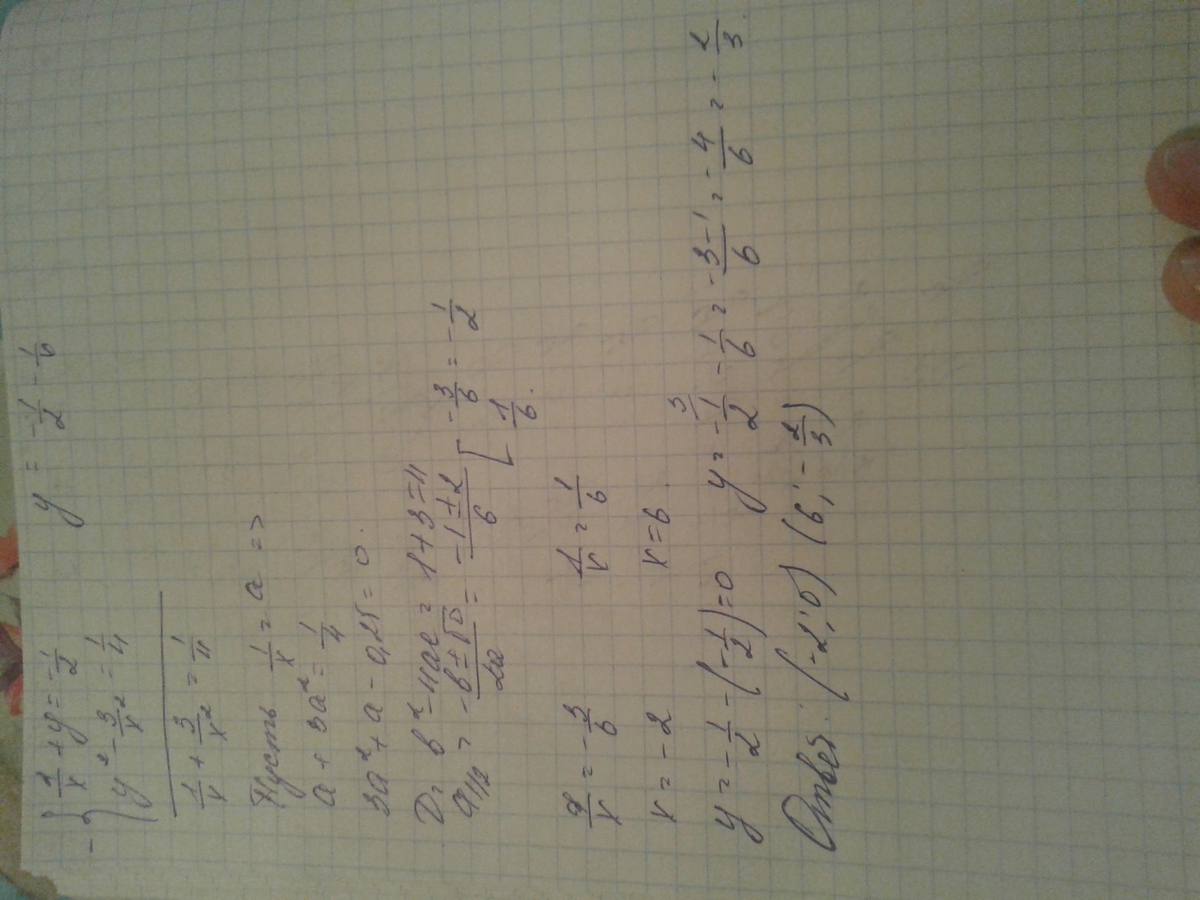 - { 1/x + y = -1/2 y = -1/2 - 1/6
y² - 3/x² = 1/4
1/x + 3/x² = 1/4
Пусть 1/x = a =>
a + 3a² = 1/4
3a² + a - 0,25 = 0.
D = b² - 4ac = 1+3=4
a1/2 = (-b ± √D)/2a = (-1 ± 2)/6 [ -3/6 = -1/2
1/6.
1/x = -3/6 1/x = 1/6
x = -2 x = 6
y = -1/2 - (-1/2) = 0 y = -1/2 - 1/6 = (-3-1)/6 = -4/6 = -2/3.
Ответ: (-2; 0) (6; -2/3)